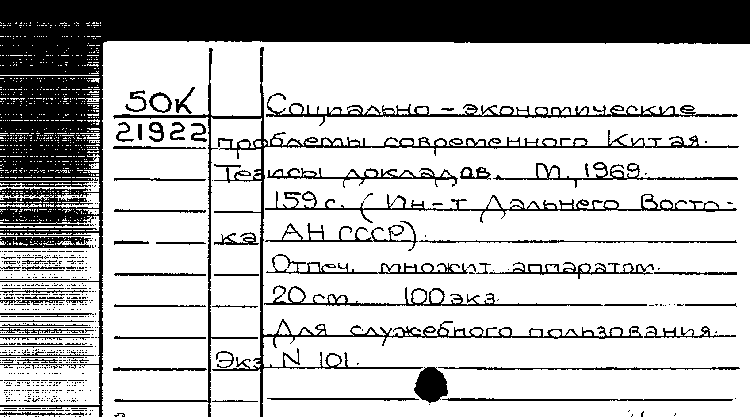 50К
21922
Социально-экономические
проблемы современного Китая.
Тезисы докладов. М., 1969.
159 с. (Ин-т Дальнего Восто-
ка АН СССР).
Отпеч. множит. аппаратом.
20 см. 100 экз.
Для служебного пользования.
Экз. N 101.